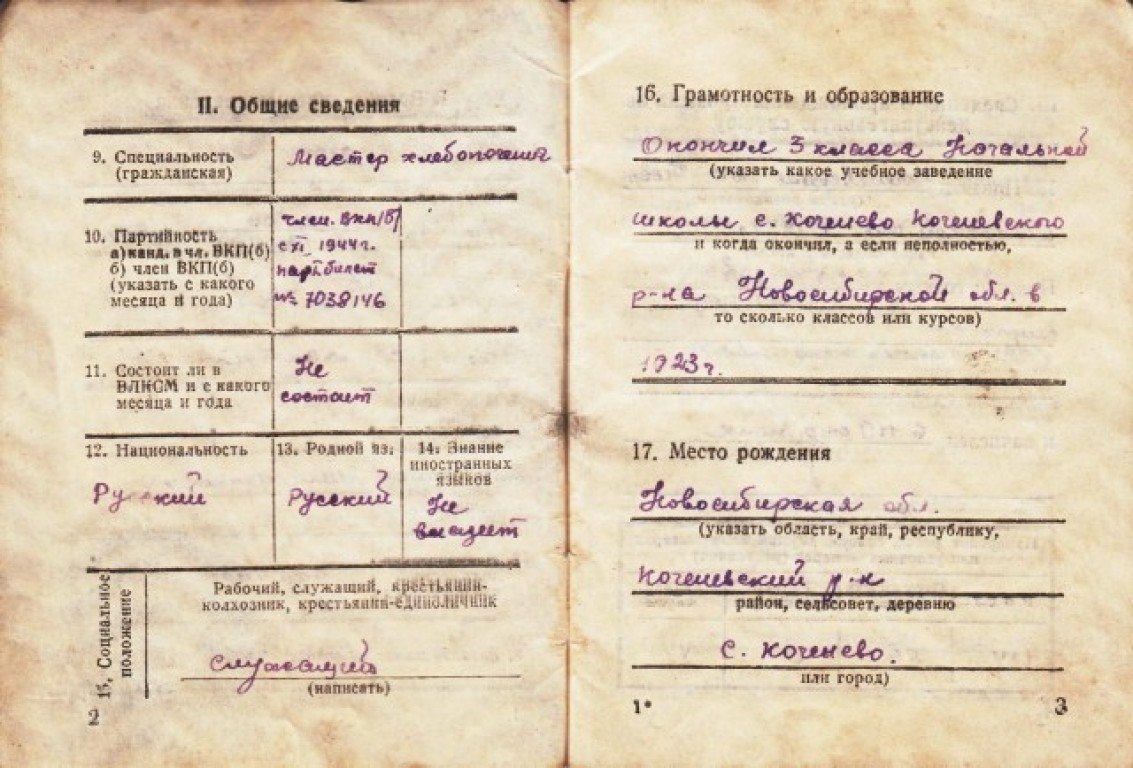 II. Общие сведения
9. Специальность
(гражданская)
Мастер хлебопечения
10. Партийность
а) канд. в чл. ВКП(б)
б) член ВКП(б)
(указать с какого
месяца и года)
член. ВКП/б/
с XI 1944 г.
партбилет
№ 7038146
11. Состоит ли в
ВЛКСМ и с какого
месяца и года
Не
состоит
12. Национальность
Русский
13. Родной яз.
Русский
14. Знание
иностранных
языков
Не
владеет
15. Социальное
положение
Рабочий, служащий, крестьянин-
колхозник, крестьянин-единоличник
Служащий
(написать)
2
16. Грамотность и образование
Окончил 3 класса Начальной
(указать какое учебное заведение
школы с. Коченево Коченевского
и когда окончил, а если неполностью,
р-на Новосибирской обл. в
то сколько классов или курсов)
1923 г.
17. Место рождения
Новосибирская обл.
(указать область, край, республику,
Коченевский р-н
район, сельсовет, деревню
с. Коченево.
или город)
1*
3